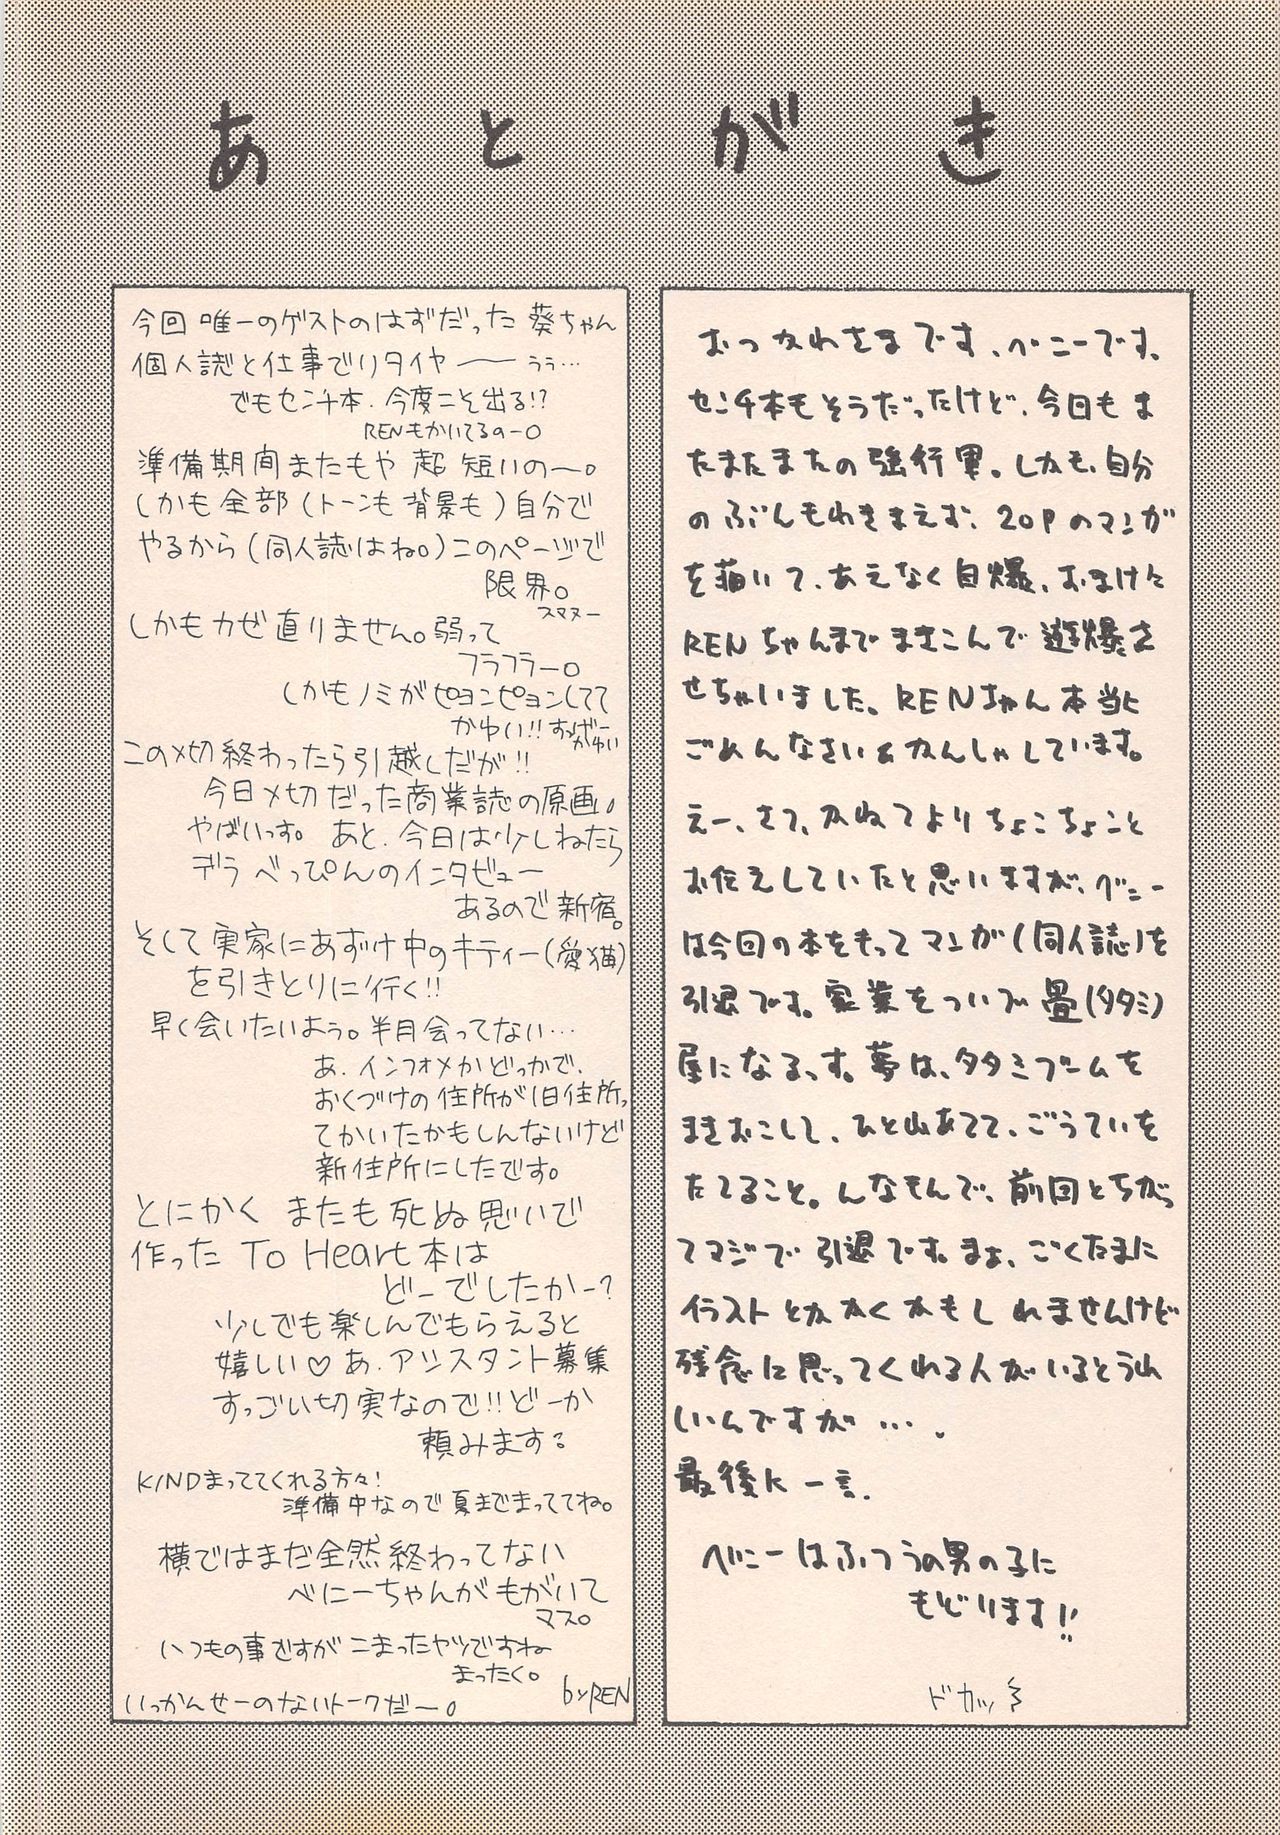 あとがき
おつかれさまです、ベニーです。
センチ本もそうだったけど、今日もま
たまたまたの強行軍。しかも、自分
のぶんもわきまえず、20Pのマンガ
を描いて、あえなく自爆、おまけに
RENちゃんまでまきこんで遊爆さ
せちゃいました。RENちゃん本当に
ごめんなさい&かんしゃしています。
えー、さて、かねてよりちょこちょこと
お伝えしていたと思いますが、ベニー
は今回の本をもってマンガ(同人誌)を
引退です。家業をついで畳(タタミ)
屋になるっす。夢は、タタミブームを
まきおこして、ひと山あてて、ごうていを
たてること。んなもんで、前回とちがっ
てマジで引退です。まぁ、ごくたまに
イラストとかかくかもしれませんけど
残念に思ってくれる人がいるとうれ
しいんですが…。
最後に一言.
ベニーはふつうの男の子に
もどります!!
ドカッ
今回 唯一のゲストのはずだった 葵ちゃん
個人誌と仕事でリタイヤ―― ぅぅ…
でもセンチ本.今度こそ出る!?
RENもかいてるのー。
準備期間またもや 超 短いの〜。
しかも全部(トーンも背景も)自分で
やるから(同人誌はね。)このページで
限界。
スマヌー
しかもカゼ直りません。弱って
フラフラー。
しかもノミがピョンピョンしてて
かゆい!! すんげーかゆい
この〆切終わったら引越しだが!!
今日〆切だった商業誌の原画。
やばいっす。あと、今日は少しねたら
デラべっぴんのインタビュー
あるので新宿。
そして実家にあずけ中のキティー(愛猫)
を引きとりに行く!!
早く会いたいよう。半月会ってない…
あ.インフォメかどっかで、
おくづけの住所が旧住所っ
てかいたかもしんないけど
新住所にしたです。
とにかく またも死ぬ思いで
作った To Heart本は
どーでしたかー?
少しでも楽しんでもらえると
嬉しい♡ あ.アシスタント募集
すっごい切実なので!!どーか
頼みます。
KINDまっててくれる方々!
準備中なので夏までまっててね。
横ではまだ全然終わってない
べにーちゃんがもがいて
マス。
いつもの事ですがこまったヤツですね
まったく。
いっかんせーのないトークだ〜。
by REN